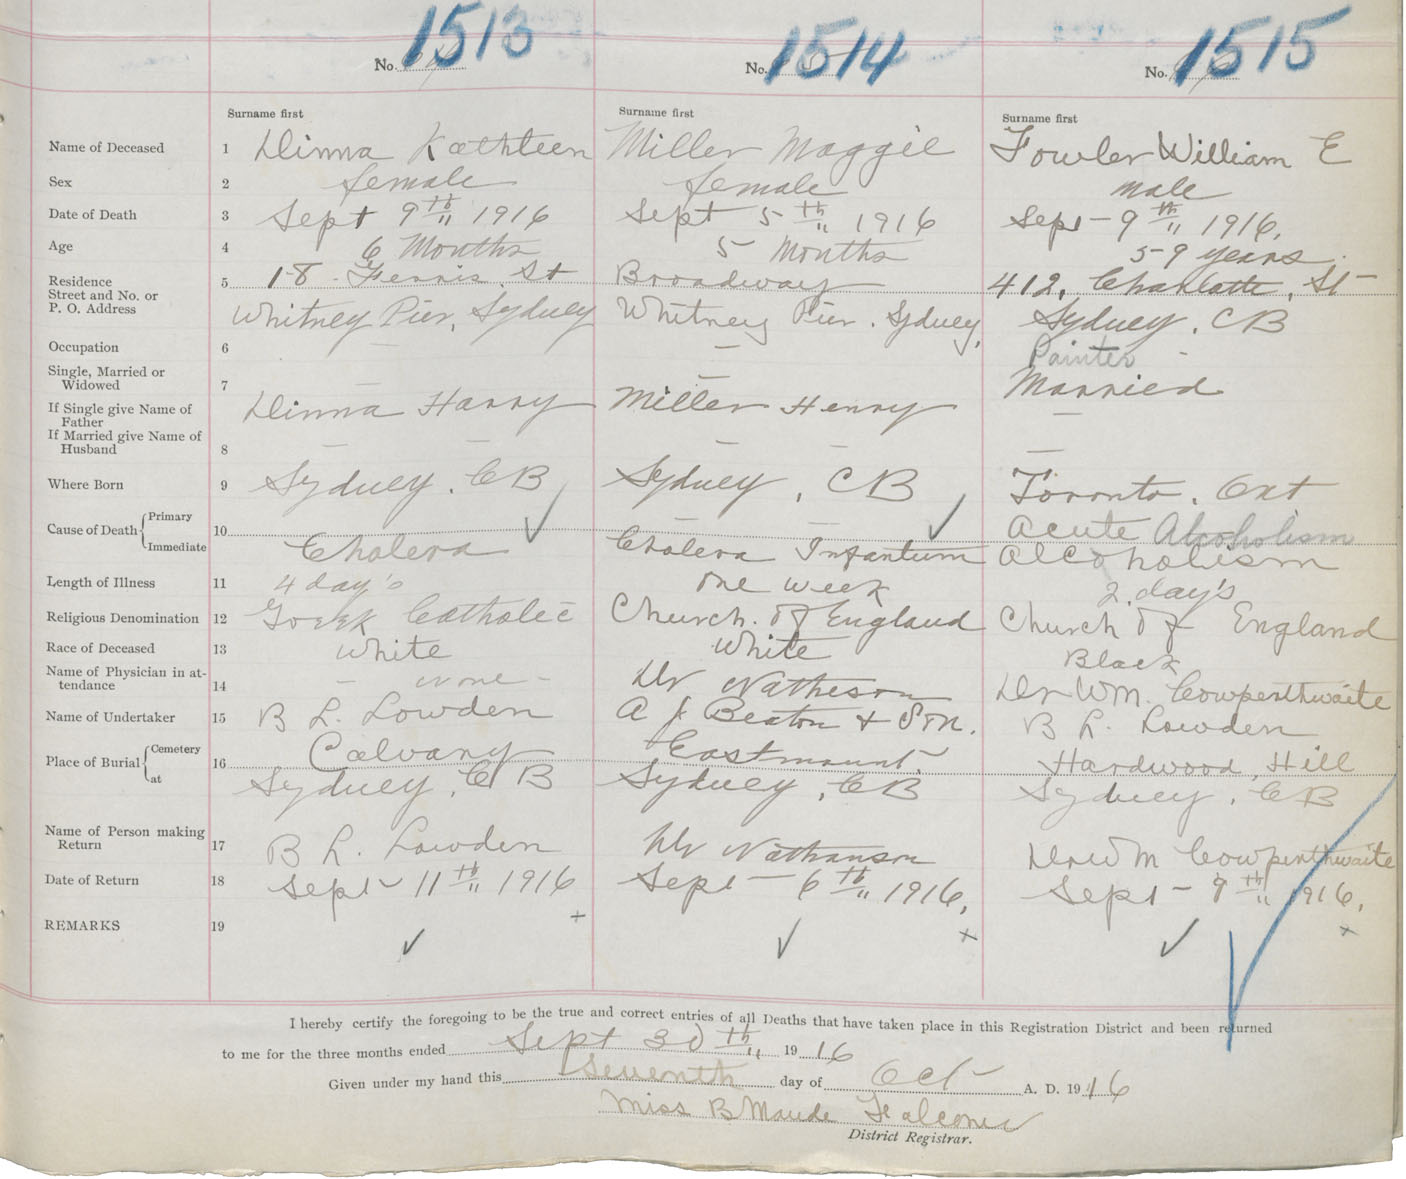 1513 1514 1515
No. No. No.
Surname first Surname first Surname first
Name of Deceased 1 Dinna Kathleen Miller Maggie Fowler William E
Sex 2 female female male
Date of Death 3 Sept 9th 1916 Sept 5th 1916 Sept - 9th 1916.
Age 4 6 Months 5 Months 59 years.
Residence 5 18 Ferris St Broadway 412, Charlotte, St
Street and No. or
P. O. Address Whitney Pier, Sydney Whitney Pier. Sydney, Sydney, CB
Occupation 6 — — Painter -
Single, Married or
Widowed 7 — — Married
If Single give Name of
Father Dinna Harry Miller Henry —
If Married give Name of
Husband 8 — — — — —
Where Born 9 Sydney, CB Sydney, CB Toronto, Ont
Cause of Death { Primary 10 — — Acute Alcoholism
Immediate Cholera Cholera Infantum Alcoholism
Length of Illness 11 4 day's One week 2 day's
Religious Denomination 12 Greek Catholic Church. of England Church of England
Race of Deceased 13 White White Black
Name of Physician in at-
tendance 14 - None - Dr Dr Wm. Cowperthwaite
Name of Undertaker 15 B L. Lowden A J. Beaton + Son. B L. Lowden
Place of Burial { Cemetery 16 Calvary Eastmount, Hardwood, Hill
at Sydney, CB Sydney, CB Sydney, CB
Name of Person making
Return 17 B L. Lowden Dr Nathanson Dr Wm Cowperthwaite
Date of Return 18 Sept - 11th 1916 Sept - 6th 1916, Sept - 9th 1916,
REMARKS 19
I hereby certify the foregoing to be the true and correct entries of all Deaths that have taken place in this Registration District and been returned
to me for the three months ended Sept 30th 1916
Given under my hand this Seventh day of Oct A. D. 1916
Miss B Maude Falconer
District Registrar.